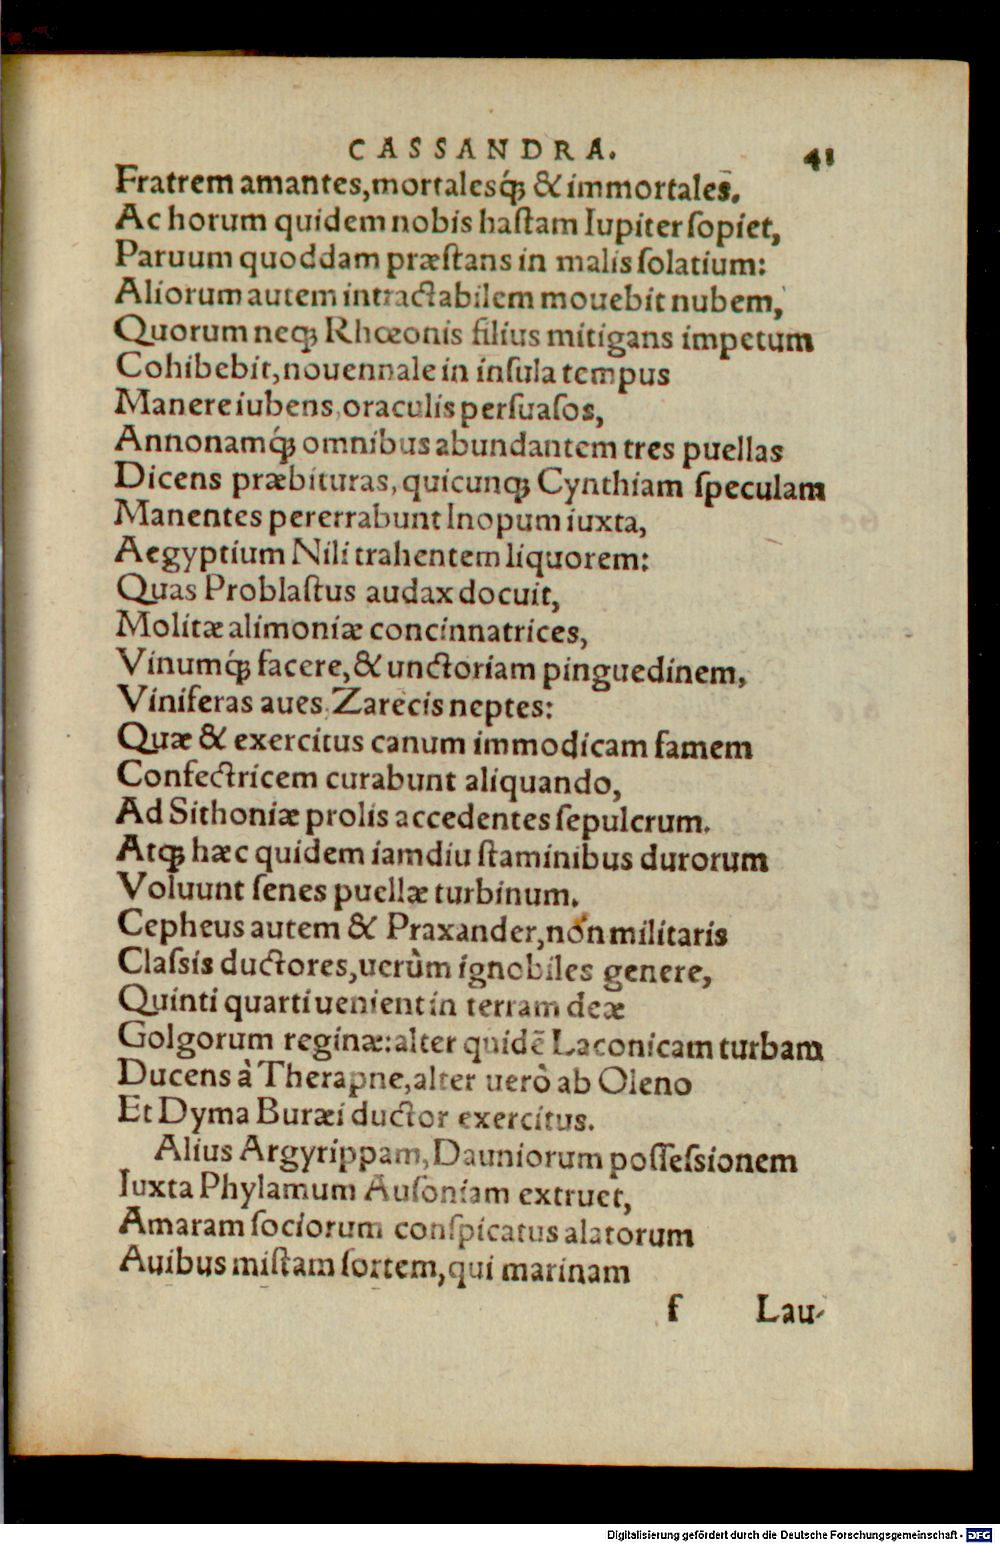 CASSANDRA. 41
Fratrem amantes, mortalesq́ꝫ & immortales.
Ac horum quidem nobis haſtam Iupiter ſopiet,
Paruum quoddam præſtans in malis ſolatium:
Aliorum autem intractabilem mouebit nubem,
Quorum neqꝫ Rhœonis filius mitigans impetum
Cohibebit, nouennale in inſula tempus
Manere iubens, oraculis perſuaſos,
Annonamq́ꝫ omnibus abundantem tres puellas
Dicens præbituras, quicunqꝫ Cynthiam ſpeculam
Manentes pererrabunt Inopum iuxta,
Aegyptium Nili trahentem liquorem:
Quas Problaſtus audax docuit,
Molitæ alimoniæ concinnatrices,
Vinumq́ꝫ facere, & unctoriam pinguedinem,
Viniferas aues Zarecis neptes:
Quæ & exercitus canum immodicam famem
Confectricem curabunt aliquando,
Ad Sithoniæ prolis accedentes ſepulcrum.
Atqꝫ hæc quidem iamdiu ſtaminibus durorum
Voluunt ſenes puellæ turbinum.
Cepheus autem & Praxander, non militaris
Claſsis ductores, uerùm ignobiles genere,
Quinti quarti uenient in terram deæ
Golgorum reginæ: alter quidē Laconicam turbam
Ducens à Therapne, alter uerò ab Oleno
Et Dyma Buræi ductor exercitus.
Alius Argyrippam, Dauniorum poſſeſsionem
Iuxta Phylamum Auſoniam extruet,
Amaram ſociorum conſpicatus alatorum
Auibus miſtam ſortem, qui marinam
f Lau-
Digitalisierung gefördert durch die Deutsche Forschungsgemeinschaft - DFG